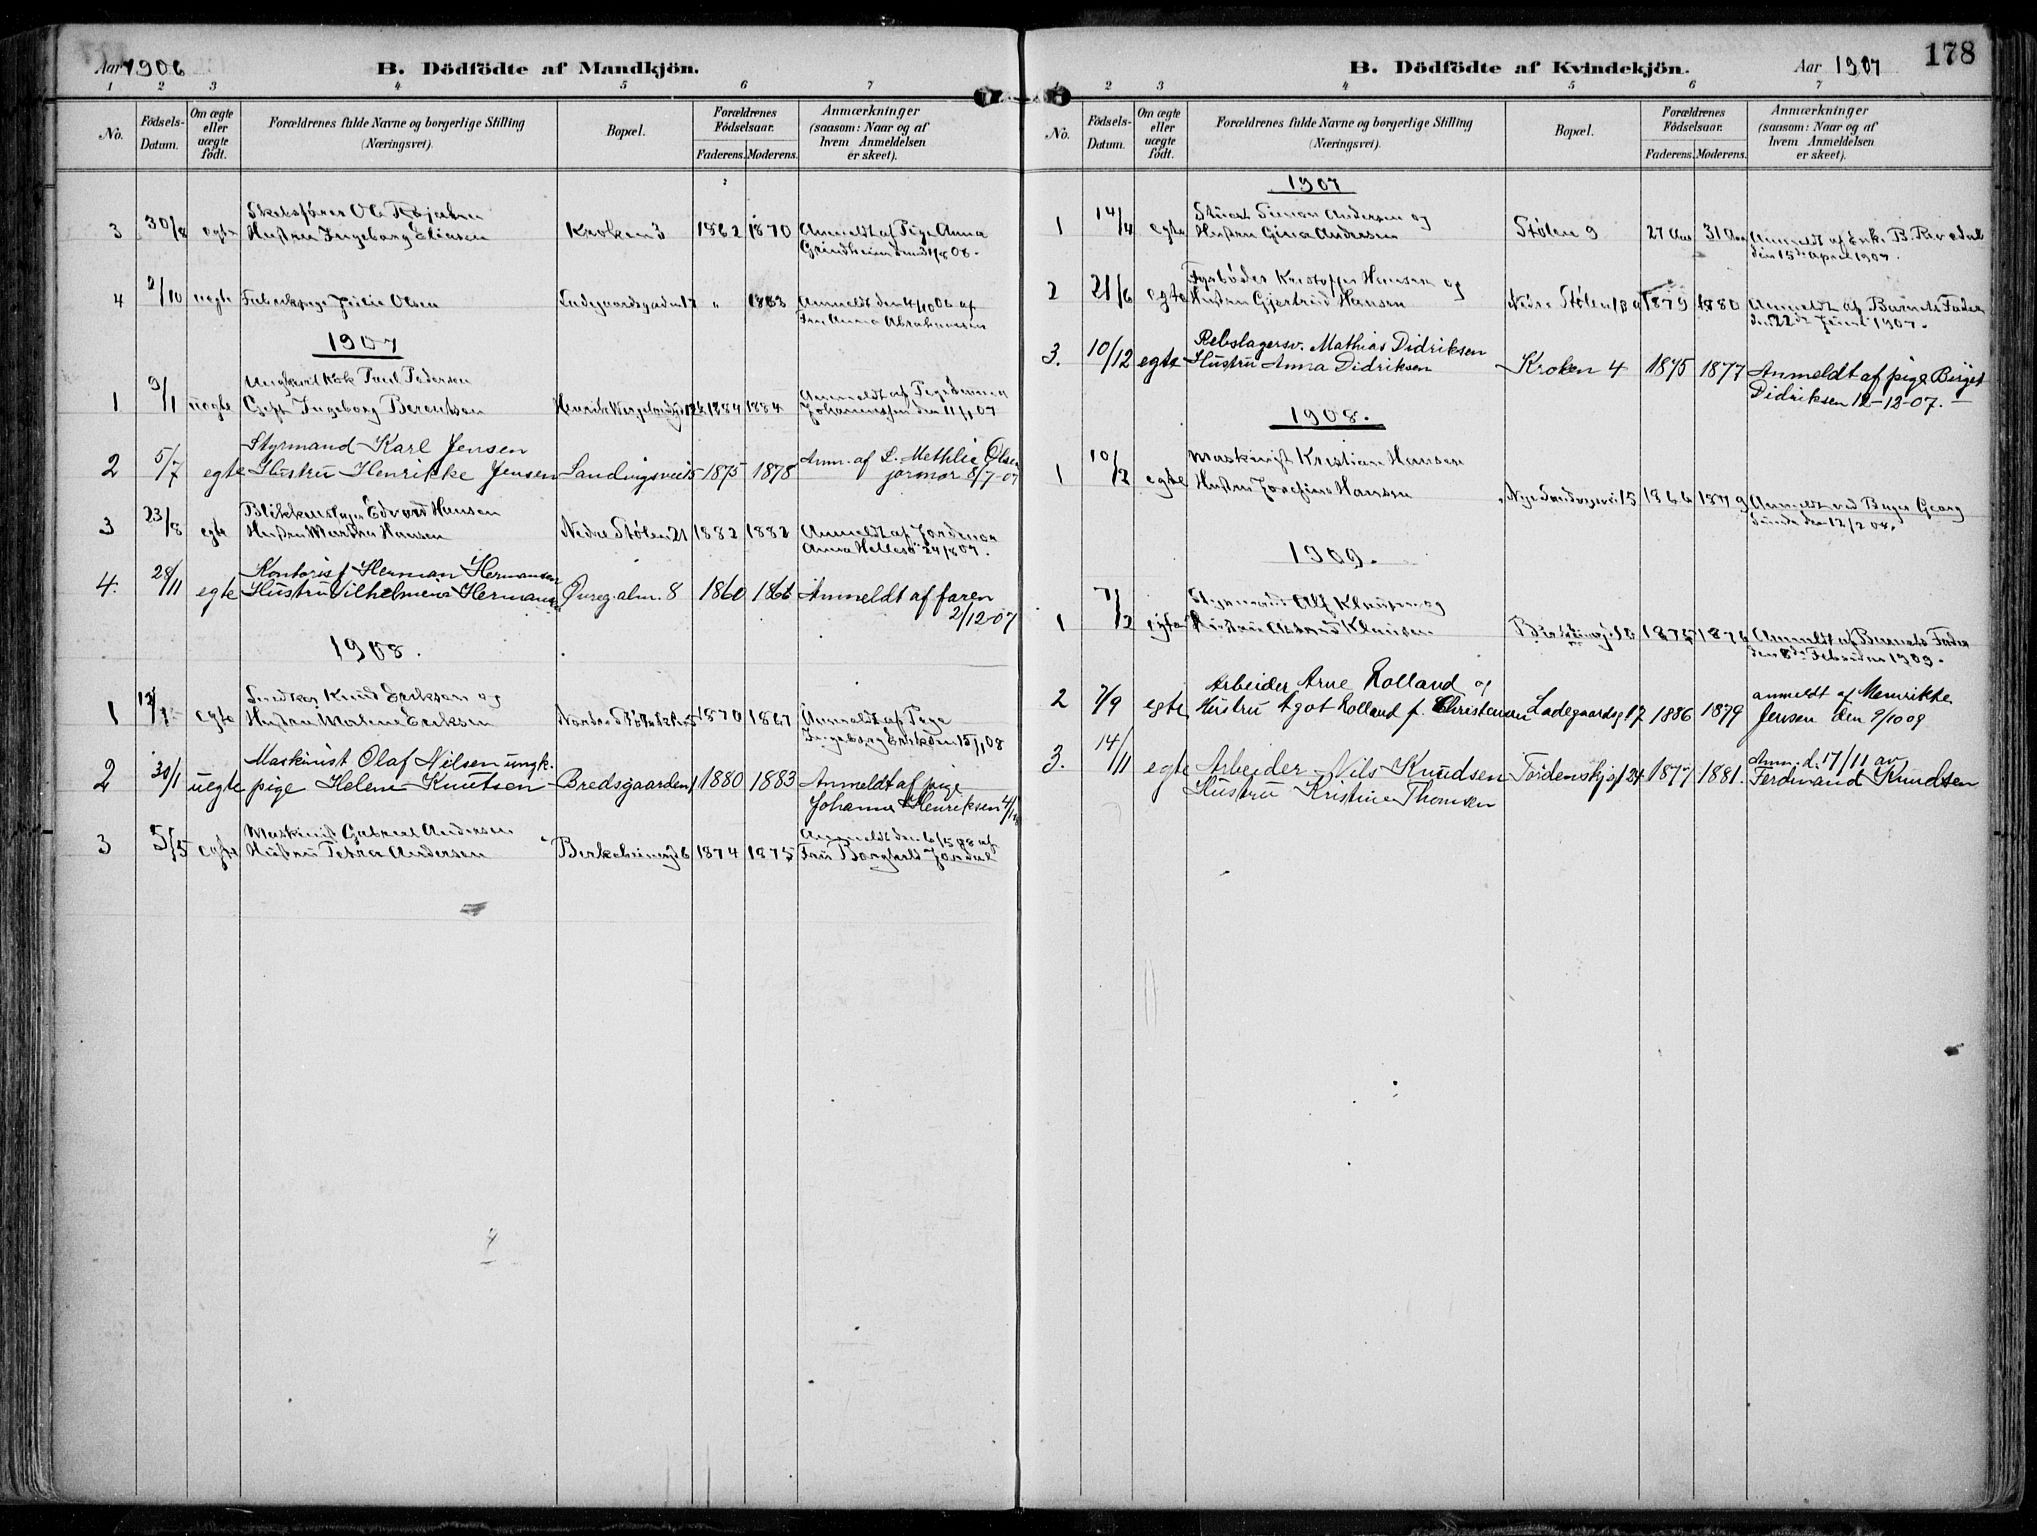 Aar 1906
B. Dödfödte af Mandkjön.
1 2 3 4 5 6 7
No.
Födsels-Datum.
Om ægte eller uægte födt.
Forældrenes fulde Navne og borgerlige Stilling (Næringsvei).
Bopæl.
Forældrenes Födselsaar.
Faderens. Moderens.
Anmærkninger (saasom: Naar og af hvem Anmeldelsen er skeet).
3 30/8 egte Ole
Hustru Ingeborg Eliasen Kroken 3 1862 1870 Anmeldt af Pige Anna
Grindheim
4 2/10 uegte Fabrikpige Olsen Ladegaardsgaden 17 " 1883 Anmeldt den 4/10 06 af
Fru Anna Abrahamsen
1907
Ungkarl Kok Paul Pedersen
1 9/1 uegte Ingeborg Berentsen 1884 1884 Anmeldt af Pige
Johannessen den 11/1 07
Styrmand Karl Jensen
2 5/7 egte Hustru Henrikke Jensen Sandvigsvei 15 1875 1878 Anm. af L. Methlie Olsen
jormor 8/7-07
Blikkenslager Edvard Hansen
3 23/8 egte Hustru Martha Hansen Nedre Stølen 21 1882 1882 Anmeldt af Jordmor
Anna Hellesø 24/8 07.
Kontorist Herman Hermansen
4. 28/11 egte Hustru Vilhelmine Hermansen Øvreg. alm. 8 1860 1866 Anmeldt af faren
2/12-07
1908.
Snedker Knud Eriksen og
1 egte Hustru Marlene Eriksen 1870 1867 Anmeldt af Pige
Ingeborg Eriksen 15/1 08
Maskinist Olaf Nilsen ungk.
2 30/1 uegte pige Helene Knutsen Bredsgaarden 1 1880 1883 Anmeldt af pige
Johanna Henriksen
Maskinist Gabriel Andersen Anmeldt den 6/5 08 af
3 5/5 egte Hustru Petra Andersen 1874 1875 Fru Borghild Jordal
B. Dödfödte af Kvindekjön.
Aar 1907
178
1 2 3 4 5 6 7
No.
Födsels-Datum.
Om ægte eller uægte födt.
Forældrenes fulde Navne og borgerlige Stilling (Næringsvei).
Bopæl.
Forældrenes Födselsaar.
Faderens. Moderens.
Anmærkninger (saasom: Naar og af hvem Anmeldelsen er skeet).
1907
Simon Andersen og
1 14/4 egte Hustru Gina Andersen Stølen 9 27 Aar 31 Aar Anmeldt af Enke B. Revedal
den 15de April 1907.
Fyrbøder Kristoffer Hansen og
2 21/6 egte Hustru Gjertrud Hansen Nedre Stølen 1879 1880 Anmeldt af Barnets Fader
den 22de Juni 1907.
Rebslagersv. Mathias Didriksen
3. 10/12 egte Hustru Anna Didriksen Kroken 4 1875 1877 Anmeldt af pige Birget
Didriksen 12-12-07.
1908.
Maskinist Kristian Hansen
1 10/2 egte Hustru Josefine Hansen Nye Sandvigsvei 15 1866 1879 Anmeldt ved Georg
den 12/2 08.
1909.
Styrmand Alf Klausen og
1 7/2 egte Hustru Klausen 1875 1876 Anmeldt af Barnets Fader
den 8de Februar 1909.
Arbeider Arne Lolland og
2 7/9 egte Hustru Agot Lolland f. Christensen Ladegaardsg 17 1886 1879 anmeldt af Henrikke
Jensen den 9/10 09
3. 14/11 egte Arbeider Nils Knudsen Tordenskj g 24 1877 1881. Anm. d. 17/11 av
Hustru Kristine Thomsen Ferdinand Knudsen